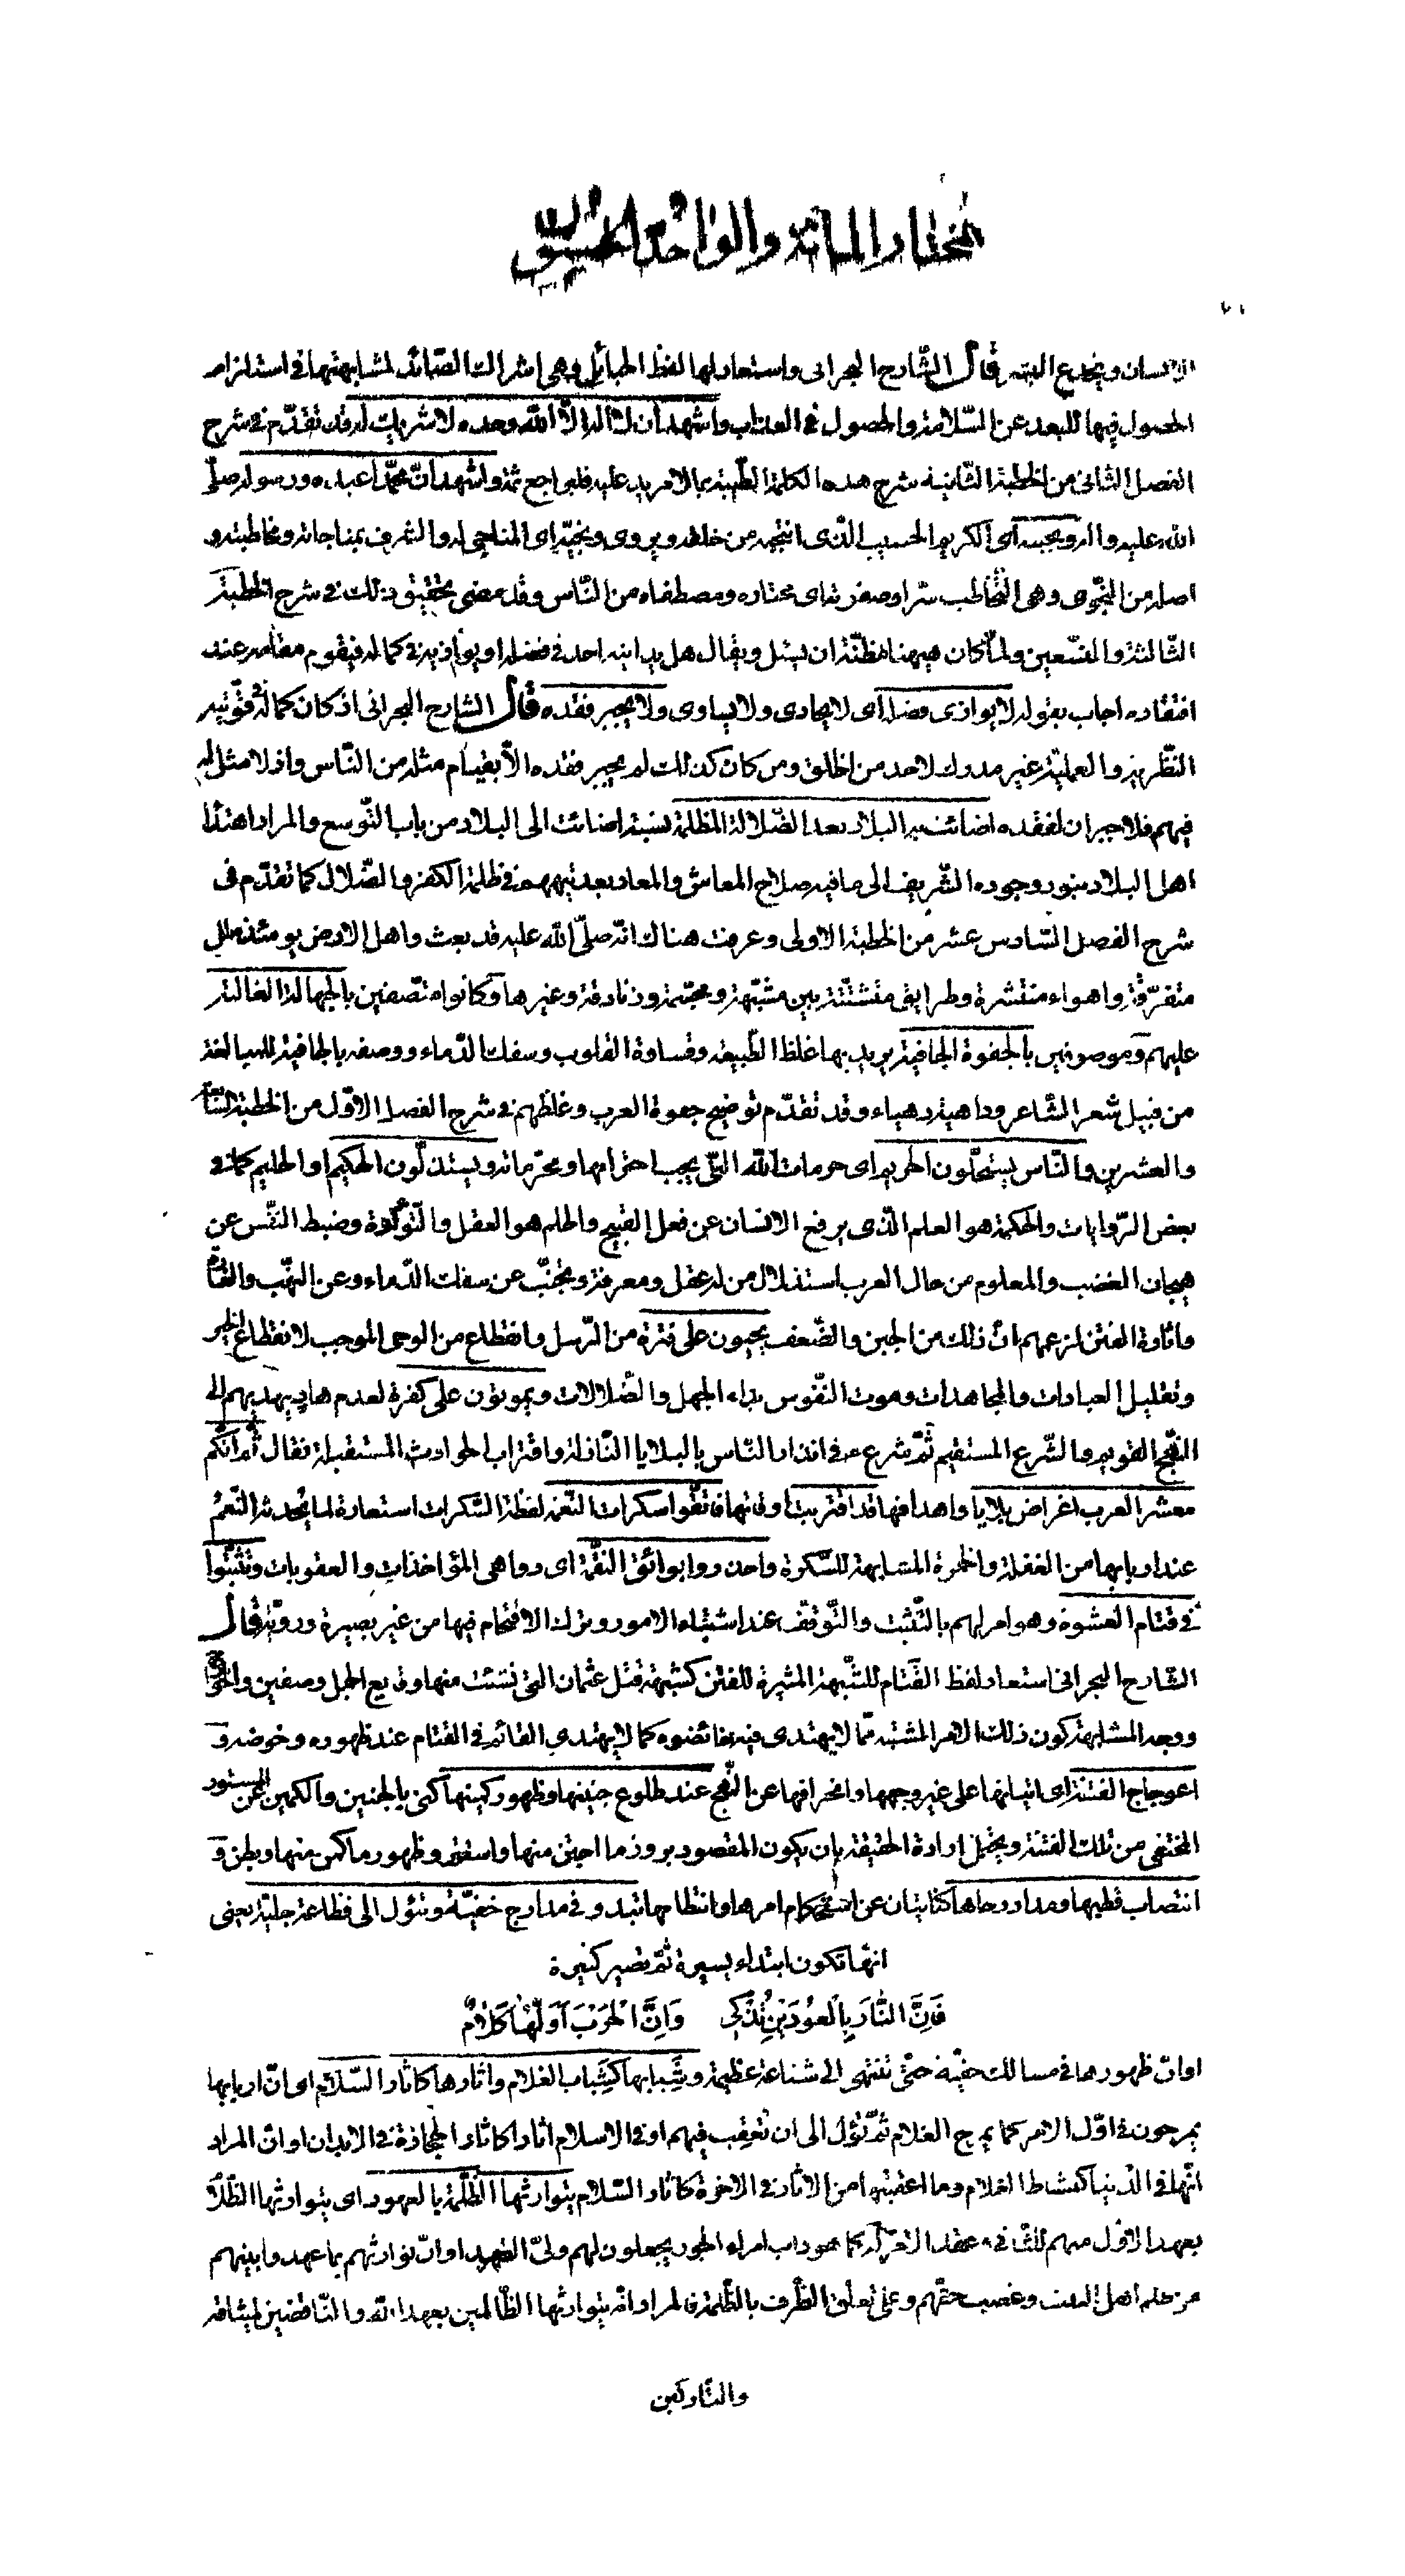 المختار المائة والواحد والخمسون
الانسان ويخدع البتة قال الشارح البحرانى واستعار لها لفظ الحبائل وهى اشراك الصائد لمشابهتها فى استلزام
الحصول فيها للبعد عن السّلامة والحصول فى العذاب واشهد ان لا اله الّا الله وحده لا شريك له قد تقدّم فى شرح
الفصل الثانى من الخطبة الثّانية شرح هذه الكلمة الطّيبة بما لا مزيد عليه فليراجع ثمة واشهد انّ محمّدا عبده ورسوله صلّى
الله عليه واله ونجيبه اى الكريم الحسيب الّذى انتجبه من خلقه ويروى ونجيّه اى المناجى له والتشرف بمناجاته ومخاطبته و
اصله من النجوى وهى التخاطب سّرا وصفوته اى مختاره ومصطفاه من النّاس وقد مضى تحقيق ذلك فى شرح الخطبة
الثّالثة والتسعين ولمّا كان هيهنا مظنّة ان يسئل ويقال هل يدانيه احد فى فضله او يوازيه فى كماله فيقوم مقامه عند
افتقاده اجاب بقوله لا يوازى فضله اى لا يحاذى ولا يساوى ولا يجبر فقده قال الشارح البحرانى اذ كان كماله فى قوّتيه
النّظرية والعملية غير مدرك لاحد من الخلق ومن كان كذلك لم يجبر فقده الّا بقيام مثله من النّاس واذ لا مثل له
فيهم فلا جبران لفقده اضائت به البلاد بعد الضّلالة المظلمة نسبة اضائت الى البلاد من باب التّوسع والمراد اهتداء
اهل البلاد بنور وجوده الشّريف الى ما فيه صلاح المعاش والمعاد بعد تيههم فى ظلمة الكفر والضّلال كما تقدّم فى
شرح الفصل السّادس عشر من الخطبة الاولى وعرفت هناك انّه صلّى الله عليه قد بعث واهل الارض يومئذ ملل
متفرّقة واهواء منتشرة وطرايق متشتّتة بين مشبّهة ومجسّمة وزنادقة وغيرها وكانوا متّصفين بالجهالة الغالبة
عليهم وموصوفين بالجفوة الجافية يريد بها غلظ الطّبيعة وقساوة القلوب وسفك الدّماء ووصفه بالجافية للمبالغة
من قبيل شعر الشّاعر وداهية دهياء وقد تقدّم توضيح جفوة العرب وغلظهم فى شرح الفصل الاوّل من الخطبة السّادسة
والعشرين والنّاس يستحلّون الحريم اى حرمات الله الّتى يجب احترامها ومحرّماته ويستذلّون الحكيم او الحليم كما فى
بعض الرّوايات والحكمة هو العلم الّذى يرفع الانسان عن فعل القبيح والحلم هو العقل والتّؤدة وضبط النّفس عن
هيجان الغضب والمعلوم من حال العرب استذلال من له عقل ومعرفة وتجنّب عن سفك الدّماء وعن النّهب والغارة
واثارة الفتن لزعمهم انّ ذلك من الجبن والضّعف يحيون على فترة من الرّسل وانقطاع من الوحى الموجب لانقطاع الخير
وتقليل العبادات والمجاهدات وموت النّفوس بداء الجهل والضّلالات ويموتون على كفرة لعدم هاد يهديهم الى
النّهج القويم والشّرع المستقيم ثمّ شرع ع فى انذار النّاس بالبلايا النّازلة واقتراب الحوادث المستقبلة فقال ثم انّكم
معشر العرب اغراض بلايا واهدافها قد اقتربت اوقاتها فاتّقوا سكرات النّعمة لفظة السّكرات استعارة لما يحدثه النّعم
عند اربابها من الغفلة والخمرة المشابهة للسّكرة واحذروا بوائق النّقمة اى دواهى المؤاخذات والعقوبات وتثبّتوا
فى قتام العشوة وهو امر لهم بالتّثبت والتّوقف عند اشتباه الامور وترك الاقتحام فيها من غير بصيرة ورويّة قال
الشّارح البحرانى استعار لفظ القتام للشّبهة المثيرة للفتن كشبهة قتل عثمان التى نشئت منها وقايع الجمل وصفين والخوارج
ووجه المشابهة كون ذلك الامر المشتبه ممّا لا يهتدى فيه خائضوه كما لا يهتدى القائم فى القتام عند ظهوره وخوضه و
اعوجاج الفتنة اى اتيانها على غير وجهها وانحرافها عن النّهج عند طلوع جنينها وظهور كمينها كنى بالجنين والكمين عن المستور
المختفى من تلك الفتنة ويحتمل ارادة الحقيقة بان يكون المقصود بروز ما اجتن منها واستتر وظهور ما كمن منها وبطن و
انتصاب قطبها ومدار رحاها كنايتان عن استحكام امرها وانتظامها تبدو فى مدارج خفيّة وتئول الى فظاعة جليّة يعنى
انّها تكون ابتداء يسيرة ثمّ تصير كثيرة
فَاِنَّ النّارَ بِالْعُودَيْنِ تُذْكى وَاِنَّ الْحَرْبَ اَوَّلُها كَلامٌ
او انّ ظهورها فى مسالك خفيّة حتّى تنتهى الى شناعة عظيمة وشِبابها كشِباب الغلام واثارها كاثار السّلام اى انّ اربابها
يمرحون فى اوّل الامر كما يمرح الغلام ثمّ تؤل الى ان تعقب فيهم او فى الاسلام اثارا كاثار الحجارة فى الابدان او انّ المراد
انّها فى الدّنيا كنشاط الغلام وما اعقبته من الاثار فى الاخرة كاثار السّلام يتوارثها الظّلمة بالعهود اى يتوارثها الظّلام
بعهد الاوّل منهم للثّانى عقد الامر له كما هو داب امراء الجور يجعلون لهم ولىّ العهد او انّ توارثهم بما عهد وا بينهم
من ظلم اهل البيت وغصب حقّهم وعلى تعلق الظّرف بالظّلمة فالمراد انّه يتوارثها الظّالمين بعهد الله والنّاقضين لميثاقه
والتّاركين